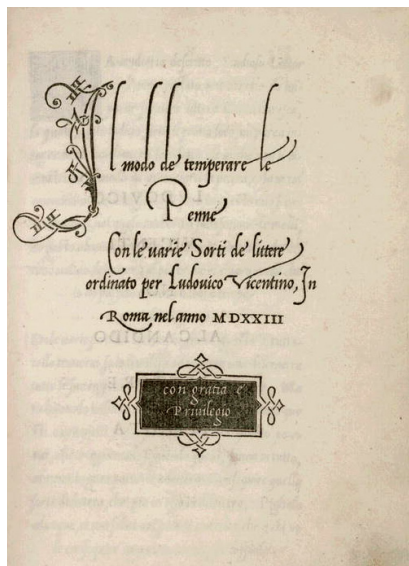 Il modo de temperare le
Penne
Con le varie Sorti de littere
ordinato per Ludovico Vicentino, In
Roma nel anno MDXXIII
con gratia e
Privilegio